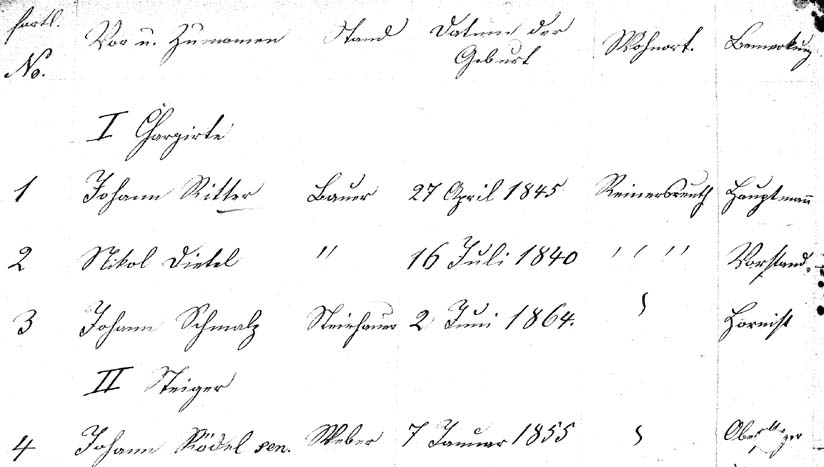 fortl. No. Vor u. Zunamen Stand Datum der Geburt Wohnort. Bemerkung
I Chargirte
1 Johann Ritter Bauer 27 April 1845 Reinersreuth Hauptmann
2 Nikol Dietel " 16 Juli 1840 " " " Vorstand.
3 Johann Schmalz Steinhauer 2 Juni 1864. Hornist
II Steiger
4 Johann Rödel sen. Weber 7 Januar 1855